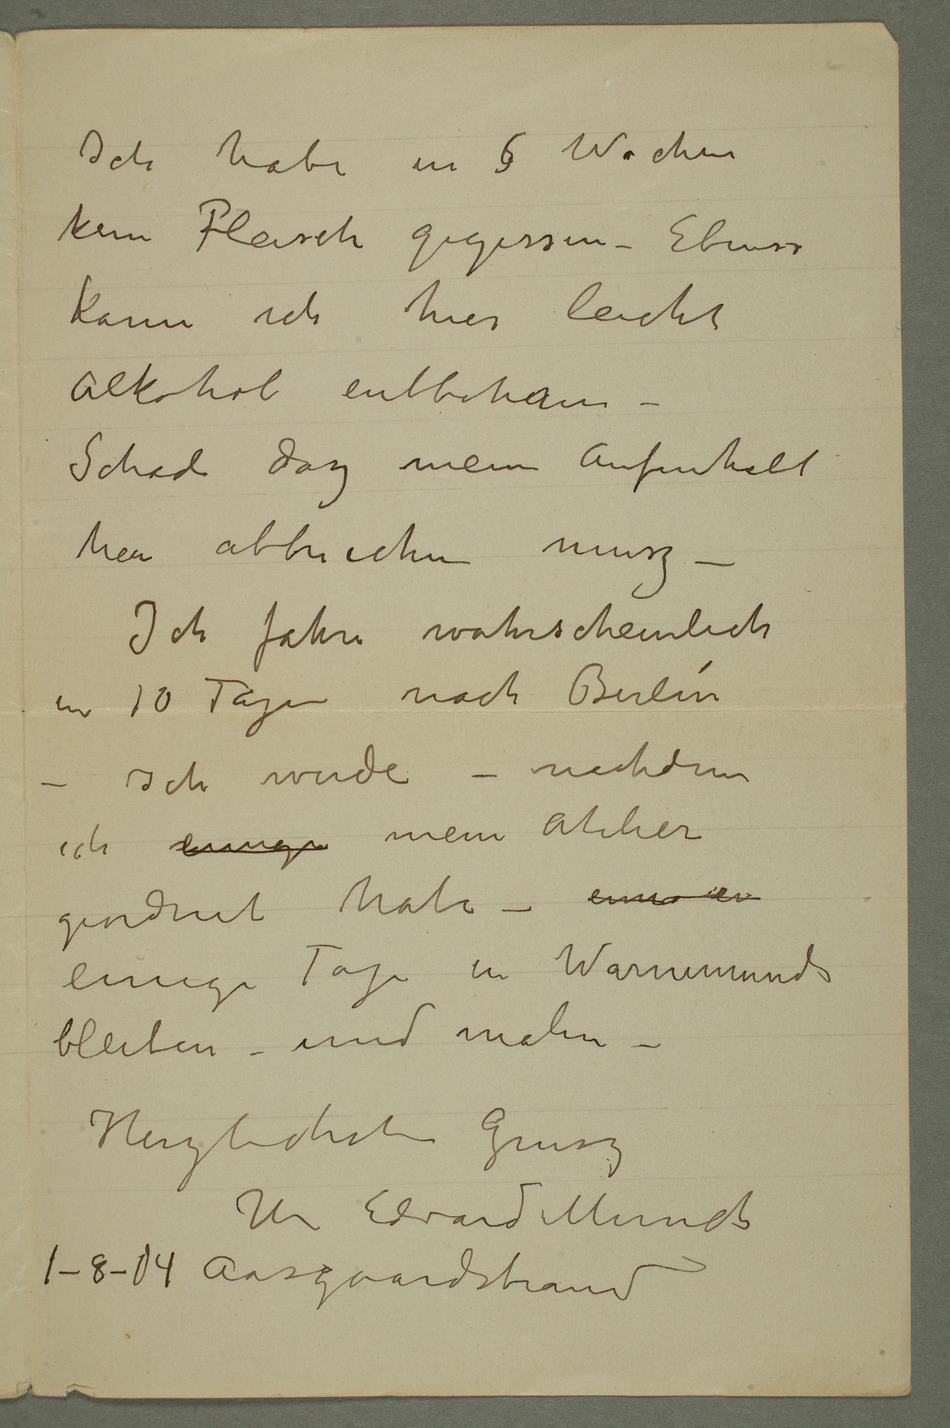 Ich habe in 6 Wochen
kein Fleisch gegessen – Ebenso
kann ich hier leicht
Alkohol entbehren –
Schade dasz mein Aufenhalt
hier abbrechen musz –
Ich fahre wahrscheinlich
in 10 Tagen nach Berlin
– Ich werde – nachdem
ich einige mein Atelier
geordnet habe –
einige Tage in Warnemunde
bleiben – und malen –
Herzlichsten Grusz
Ihr Edvard Munch
1–8–04 Aasgaardstrand